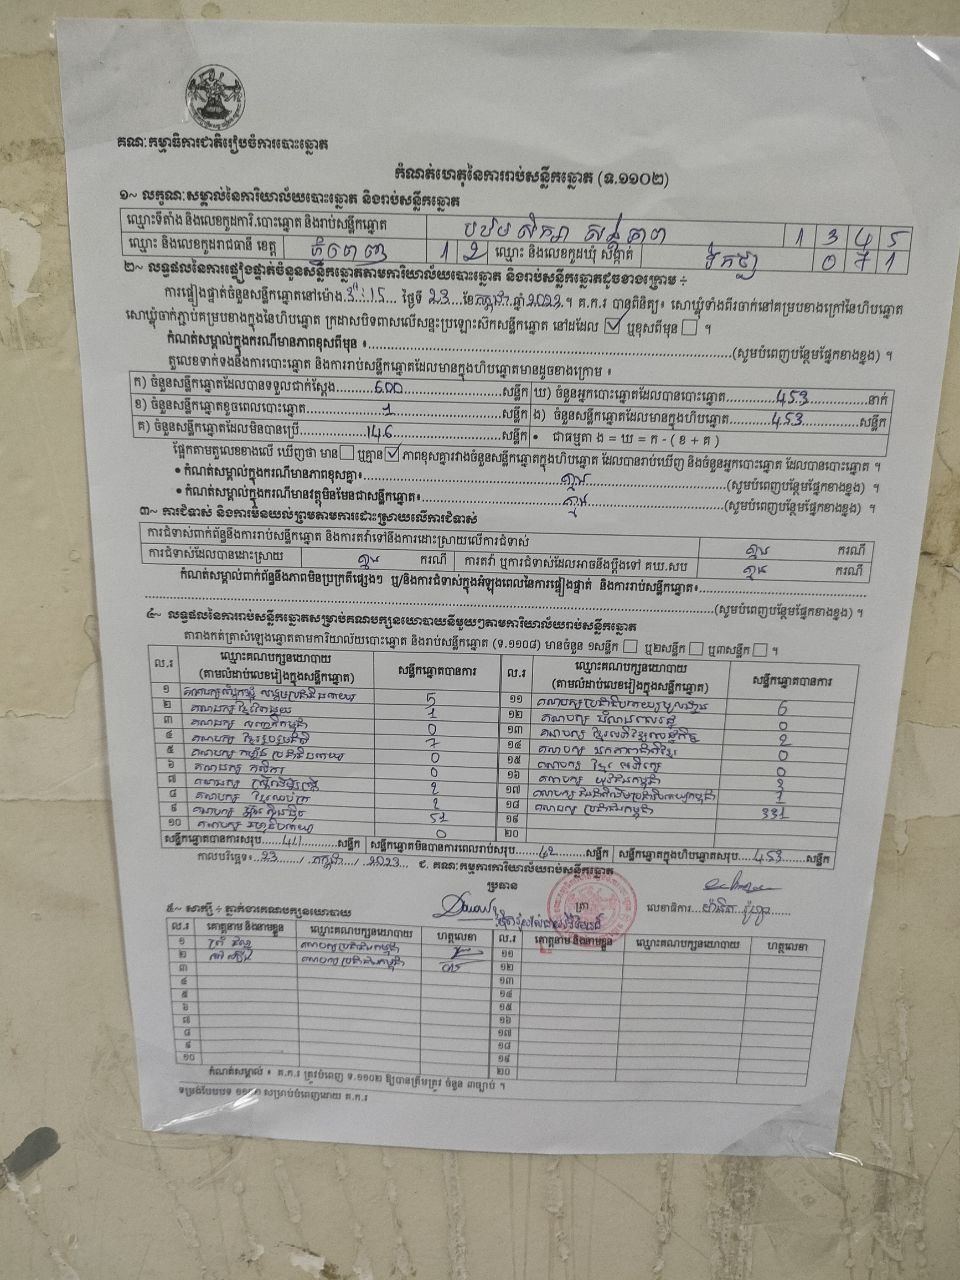 គណៈកម្មាធិការជាតិរៀបចំការបោះឆ្នោត
កំណត់ហេតុនៃការរាប់សន្លឹកឆ្នោត (ទ.១១០២)
១~ លក្ខណៈសម្គាល់នៃការិយាល័យបោះឆ្នោត និងរាប់សន្លឹកឆ្នោត
ឈ្មោះទីតាំង និងលេខកូដការិ.បោះឆ្នោត និងរាប់សន្លឹកឆ្នោត 1 3 4 5
ឈ្មោះ និងលេខកូដរាជធានី ខេត្ត ភ្នំពេញ 1 2 ឈ្មោះ និងលេខកូដឃុំ សង្កាត់ 0 7 1
២~ លទ្ធផលនៃការផ្ទៀងផ្ទាត់ចំនួនសន្លឹកឆ្នោតតាមការិយាល័យបោះឆ្នោត និងរាប់សន្លឹកឆ្នោតដូចខាងក្រោម ÷
ការផ្ទៀងផ្ទាត់ចំនួនសន្លឹកឆ្នោតនៅម៉ោង 3:15 ថ្ងៃទី 23 ខែ កក្កដា ឆ្នាំ 2023 ។ គ.ក.រ បានពិនិត្យ៖ សោឃ្លុំទាំងពីរចាក់នៅគម្របខាងក្រៅនៃហិបឆ្នោត
សោឃ្លុំចាក់ភ្ជាប់គម្របខាងក្នុងនៃហិបឆ្នោត ក្រដាសបិទពាសលើសន្ទះប្រឡោះស៊កសន្លឹកឆ្នោត នៅដដែល ☑ ឬខុសពីមុន ☐ ។
កំណត់សម្គាល់ក្នុងករណីមានភាពខុសពីមុន ៖ (សូមបំពេញបន្ថែមផ្នែកខាងខ្នង) ។
តួលេខទាក់ទងនឹងការបោះឆ្នោត និងការរាប់សន្លឹកឆ្នោតដែលមានក្នុងហិបឆ្នោតមានដូចខាងក្រោម ៖
ក) ចំនួនសន្លឹកឆ្នោតដែលបានទទួលជាក់ស្តែង 600 សន្លឹក ឃ) ចំនួនអ្នកបោះឆ្នោតដែលបានបោះឆ្នោត 453 នាក់
ខ) ចំនួនសន្លឹកឆ្នោតខូចពេលបោះឆ្នោត 1 សន្លឹក ង) ចំនួនសន្លឹកឆ្នោតដែលមានក្នុងហិបឆ្នោត 453 សន្លឹក
គ) ចំនួនសន្លឹកឆ្នោតដែលមិនបានប្រើ 146 សន្លឹក • ជាធម្មតា ង = ឃ = ក - ( ខ + គ )
ផ្អែកតាមតួលេខខាងលើ ឃើញថា មាន ☐ ឬគ្មាន ☑ ភាពខុសគ្នារវាងចំនួនសន្លឹកឆ្នោតក្នុងហិបឆ្នោត ដែលបានរាប់ឃើញ និងចំនួនអ្នកបោះឆ្នោត ដែលបានបោះឆ្នោត ។
• កំណត់សម្គាល់ក្នុងករណីមានភាពខុសគ្នា៖ គ្មាន (សូមបំពេញបន្ថែមផ្នែកខាងខ្នង) ។
• កំណត់សម្គាល់ក្នុងករណីមានវត្ថុមិនមែនជាសន្លឹកឆ្នោត៖ គ្មាន (សូមបំពេញបន្ថែមផ្នែកខាងខ្នង) ។
៣~ ការជំទាស់ និងការមិនយល់ព្រមតាមការដោះស្រាយលើការជំទាស់
ការជំទាស់ពាក់ព័ន្ធនឹងការរាប់សន្លឹកឆ្នោត និងការតវ៉ាទៅនឹងការដោះស្រាយលើការជំទាស់ គ្មាន ករណី
ការជំទាស់ដែលបានដោះស្រាយ គ្មាន ករណី ការតវ៉ា ឬការជំទាស់ដែលអាចនឹងប្តឹងទៅ គឃ.សប គ្មាន ករណី
កំណត់សម្គាល់ពាក់ព័ន្ធនឹងភាពមិនប្រក្រតីផ្សេងៗ ឬ/និងការជំទាស់ក្នុងអំឡុងពេលនៃការផ្ទៀងផ្ទាត់ និងការរាប់សន្លឹកឆ្នោត៖
(សូមបំពេញបន្ថែមផ្នែកខាងខ្នង) ។
៤~ លទ្ធផលនៃការរាប់សន្លឹកឆ្នោតសម្រាប់គណបក្សនយោបាយនីមួយៗតាមការិយាល័យរាប់សន្លឹកឆ្នោត
តារាងកត់ត្រាសំឡេងឆ្នោតតាមការិយាល័យបោះឆ្នោត និងរាប់សន្លឹកឆ្នោត (ទ.១១០៨) មានចំនួន ១សន្លឹក ☐ ឬ២សន្លឹក ☐ ឬ៣សន្លឹក ☐ ។
ល.រ ឈ្មោះគណបក្សនយោបាយ (តាមលំដាប់លេខរៀងក្នុងសន្លឹកឆ្នោត) សន្លឹកឆ្នោតបានការ ល.រ ឈ្មោះគណបក្សនយោបាយ (តាមលំដាប់លេខរៀងក្នុងសន្លឹកឆ្នោត) សន្លឹកឆ្នោតបានការ
១ គណបក្ស 5 ១១ គណបក្ស 6
២ គណបក្ស 1 ១២ គណបក្ស 0
៣ គណបក្ស 0 ១៣ គណបក្ស 2
៤ គណបក្ស 7 ១៤ គណបក្ស 0
៥ គណបក្ស 0 ១៥ គណបក្ស 0
៦ គណបក្ស 0 ១៦ គណបក្ស យុវជនកម្ពុជា 3
៧ គណបក្ស 2 ១៧ គណបក្ស 1
៨ គណបក្ស 2 ១៨ គណបក្ស ប្រជាជនកម្ពុជា 331
៩ គណបក្ស 51 ១៩
១០ គណបក្ស 0 ២០
សន្លឹកឆ្នោតបានការសរុប 411 សន្លឹក សន្លឹកឆ្នោតមិនបានការពេលរាប់សរុប 42 សន្លឹក សន្លឹកឆ្នោតក្នុងហិបឆ្នោតសរុប 453 សន្លឹក
កាលបរិច្ឆេទ៖ 23 / កក្កដា / 2023 ជ. គណៈកម្មការការិយាល័យរាប់សន្លឹកឆ្នោត
ប្រធាន ត្រា លេខាធិការ
៥~ សាក្សី ÷ ភ្នាក់ងារគណបក្សនយោបាយ
ល.រ គោត្តនាម និងនាមខ្លួន ឈ្មោះគណបក្សនយោបាយ ហត្ថលេខា ល.រ គោត្តនាម និងនាមខ្លួន ឈ្មោះគណបក្សនយោបាយ ហត្ថលេខា
១ គណបក្សប្រជាជនកម្ពុជា ១១
២ គណបក្សប្រជាជនកម្ពុជា ១២
៣ ១៣
៤ ១៤
៥ ១៥
៦ ១៦
៧ ១៧
៨ ១៨
៩ ១៩
១០ ២០
កំណត់សម្គាល់ ៖ គ.ក.រ ត្រូវបំពេញ ទ.១១០២ ឱ្យបានត្រឹមត្រូវ ចំនួន ៣ច្បាប់ ។
ទម្រង់បែបបទ ១១០២ សម្រាប់បំពេញដោយ គ.ក.រ